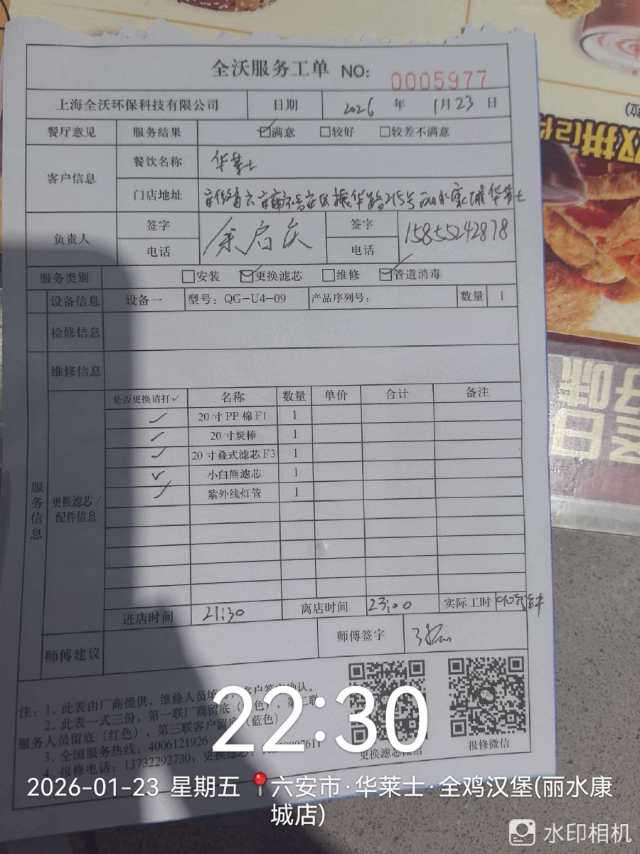 全沃服务工单 NO: 0005977
上海全沃环保科技有限公司 日期 2026 年 1月23日
餐厅意见 服务结果 ☑满意 □较好 □较差不满意
客户信息 餐饮名称 华莱士
门店地址 安徽省六安市 振华路215号 丽水康城华莱士
负责人 签字 余启庆 签字
电话 电话 15855242878
服务类别 □安装 ☑更换滤芯 □维修 ☑管道消毒
设备信息 设备一 型号: QG-U4-09 产品序列号: 数量 1
检修信息
维修信息
服务信息 更换滤芯/配件信息 是否更换请打✓ 名称 数量 单价 合计 备注
✓ 20寸PP棉F1 1
✓ 20寸炭棒 1
✓ 20寸叠式滤芯F3 1
✓ 小白熊滤芯 1
✓ 紫外线灯管 1
进店时间 21:30 离店时间 23:00 实际工时
师傅建议 师傅签字
注: 1、此表由厂商提供，维修人员 客户签字确认。
2、此表一式三份，第一联厂商留底（ 色），第二联
服务人员留底（红色），第三联客户留底（蓝色）
3、全国服务热线: 4006121926
4、报修电话: 13732292730;
更换滤芯微信 报修微信
22:30
2026-01-23 星期五 六安市·华莱士·全鸡汉堡(丽水康
城店)
水印相机
双拼